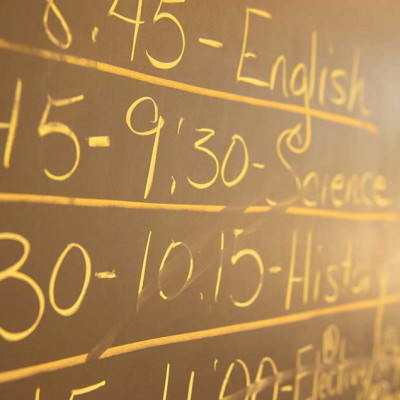 8:45 - English
45 - 9:30 - Science
30 - 10:15 - History
15 11:00 - Elective